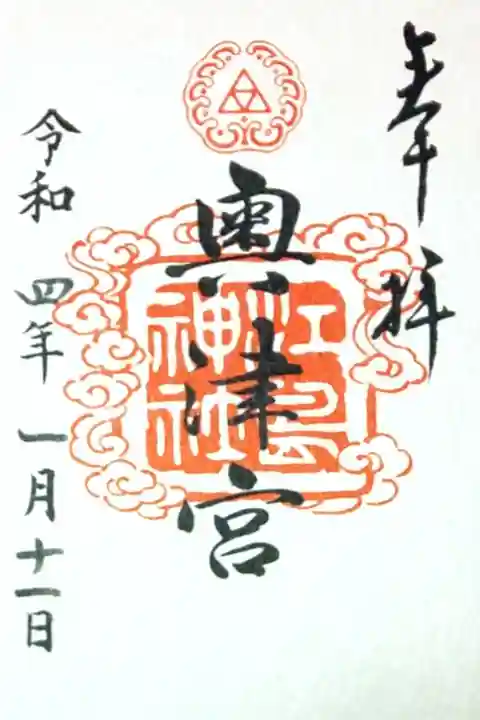 奉拝
奥津宮
江島神社
令和四年一月十一日